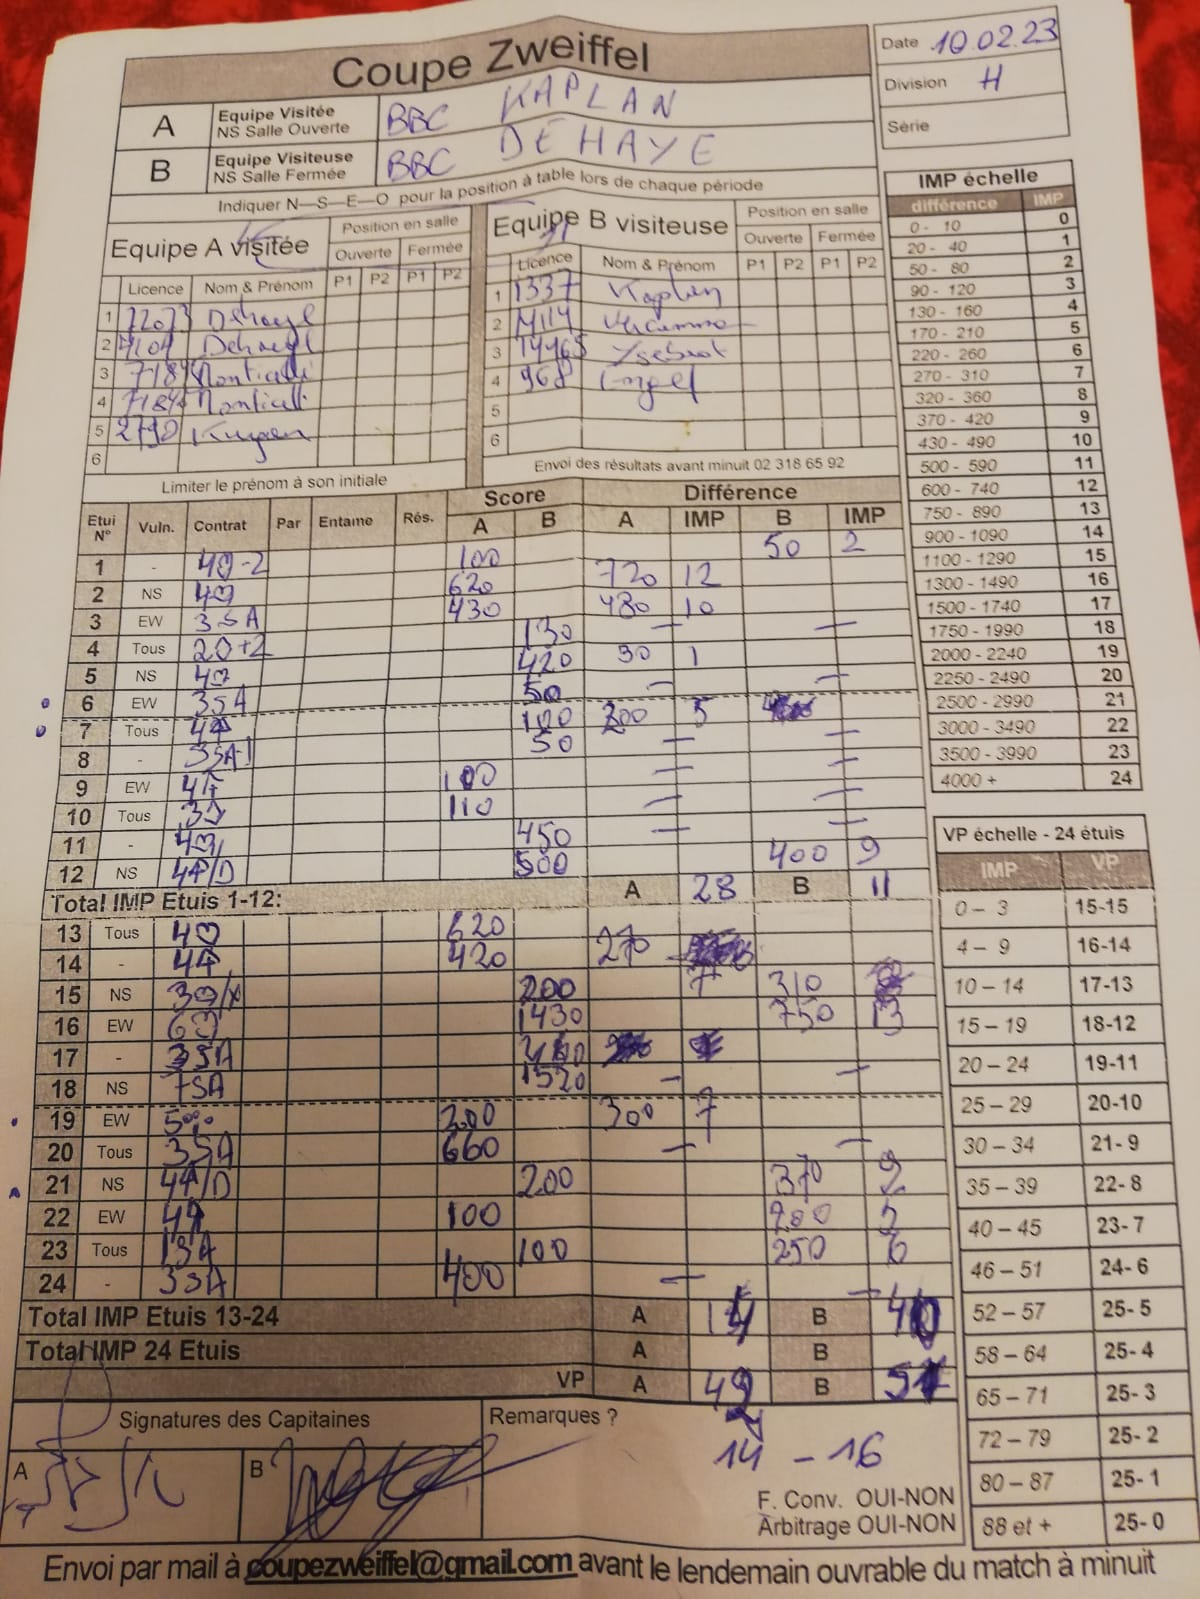 Coupe Zweiffel
Date 10.02.23
Division H
Série
A Equipe Visitée NS Salle Ouverte BBC KAPLAN
B Equipe Visiteuse NS Salle Fermée BBC DEHAYE
Indiquer N—S—E—O pour la position à table lors de chaque période
Equipe A visitée Position en salle Ouverte Fermée
Licence Nom & Prénom P1 P2 P1 P2
1
2
3 Monticelli
4 Monticelli
5 2790
6
Equipe B visiteuse Position en salle Ouverte Fermée
Licence Nom & Prénom P1 P2 P1 P2
1 1337 Kaplan
2
3
4 968 Engel
5
6
Limiter le prénom à son initiale
Envoi des résultats avant minuit 02 318 65 92
Etui N° Vuln. Contrat Par Entame Rés. Score A B Différence A IMP B IMP
1 - 4♡-2 100 50 2
2 NS 4♡ 620 720 12
3 EW 3SA 430 480 10
4 Tous 2♢+2 130 — —
5 NS 4♡ 420 30 1
6 EW 3SA 50 — —
7 Tous 4♠ 100 200 5
8 - 3SA-1 50 — —
9 EW 4♠ 100 — —
10 Tous 110 — —
11 - 4♡ 450 — —
12 NS 4♠/D 500 400 9
Total IMP Etuis 1-12: A 28 B 11
13 Tous 4♡ 620
14 - 4♠ 420 270 7
15 NS 3♡/X 200 310
16 EW 6♡ 1430 750 13
17 - 3SA
18 NS 7SA 1520 — —
19 EW 5♣ 200 300 7
20 Tous 3SA 660 — —
21 NS 4♠/D 200 370 9
22 EW 4♠ 100 200 5
23 Tous 1SA 100 250 6
24 - 3SA 400 — —
Total IMP Etuis 13-24 A 14 B 40
Total IMP 24 Etuis A B
VP A 42 B 51
Signatures des Capitaines
A
B
Remarques ?
14 - 16
F. Conv. OUI-NON
Arbitrage OUI-NON
IMP échelle
différence IMP
0 - 10 0
20 - 40 1
50 - 80 2
90 - 120 3
130 - 160 4
170 - 210 5
220 - 260 6
270 - 310 7
320 - 360 8
370 - 420 9
430 - 490 10
500 - 590 11
600 - 740 12
750 - 890 13
900 - 1090 14
1100 - 1290 15
1300 - 1490 16
1500 - 1740 17
1750 - 1990 18
2000 - 2240 19
2250 - 2490 20
2500 - 2990 21
3000 - 3490 22
3500 - 3990 23
4000 + 24
VP échelle - 24 étuis
IMP VP
0 – 3 15-15
4 – 9 16-14
10 – 14 17-13
15 – 19 18-12
20 – 24 19-11
25 – 29 20-10
30 – 34 21- 9
35 – 39 22- 8
40 – 45 23- 7
46 – 51 24- 6
52 – 57 25- 5
58 – 64 25- 4
65 – 71 25- 3
72 – 79 25- 2
80 – 87 25- 1
88 et + 25- 0
Envoi par mail à coupezweiffel@gmail.com avant le lendemain ouvrable du match à minuit